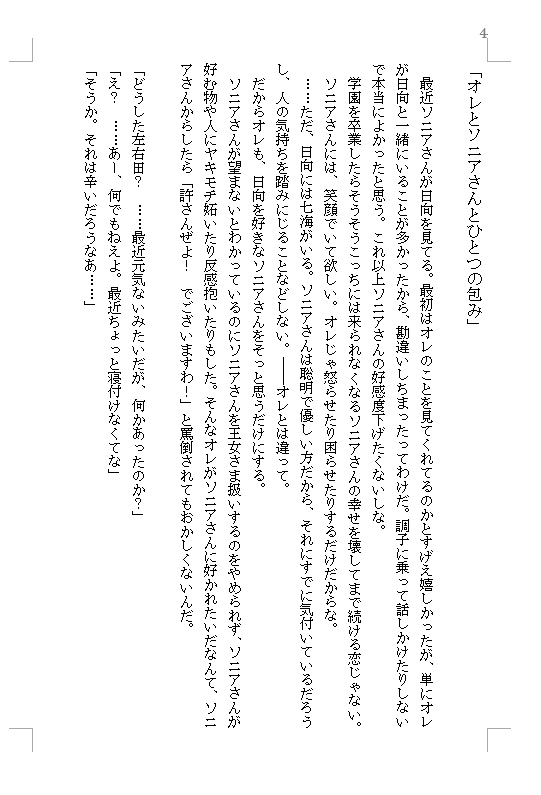 4
「オレとソニアさんとひとつの包み」
最近ソニアさんが日向を見てる。最初はオレのことを見てくれてるのかとすげえ嬉しかったが、単にオレ
が日向と一緒にいることが多かったから、勘違いしちまったってわけだ。調子に乗って話しかけたりしない
で本当によかったと思う。これ以上ソニアさんの好感度下げたくないしな。
学園を卒業したらそうそうこっちには来られなくなるソニアさんの幸せを壊してまで続ける恋じゃない。
ソニアさんには、笑顔でいて欲しい。オレじゃ怒らせたり困らせたりするだけだからな。
……ただ、日向には七海がいる。ソニアさんは聡明で優しい方だから、それにすでに気付いているだろう
し、人の気持ちを踏みにじることなどしない。――オレとは違って。
だからオレも、日向を好きなソニアさんをそっと思うだけにする。
ソニアさんが望まないとわかっているのにソニアさんを王女さま扱いするのをやめられず、ソニアさんが
好む物や人にヤキモチ妬いたり反感抱いたりもした。そんなオレがソニアさんに好かれたいだなんて、ソニ
アさんからしたら「許さんぜよ!　でございますわ!」と罵倒されてもおかしくないんだ。
「どうした左右田?　……最近元気ないみたいだが、何かあったのか?」
「え?　……あー、何でもねえよ。最近ちょっと寝付けなくてな」
「そうか。それは辛いだろうなあ……」